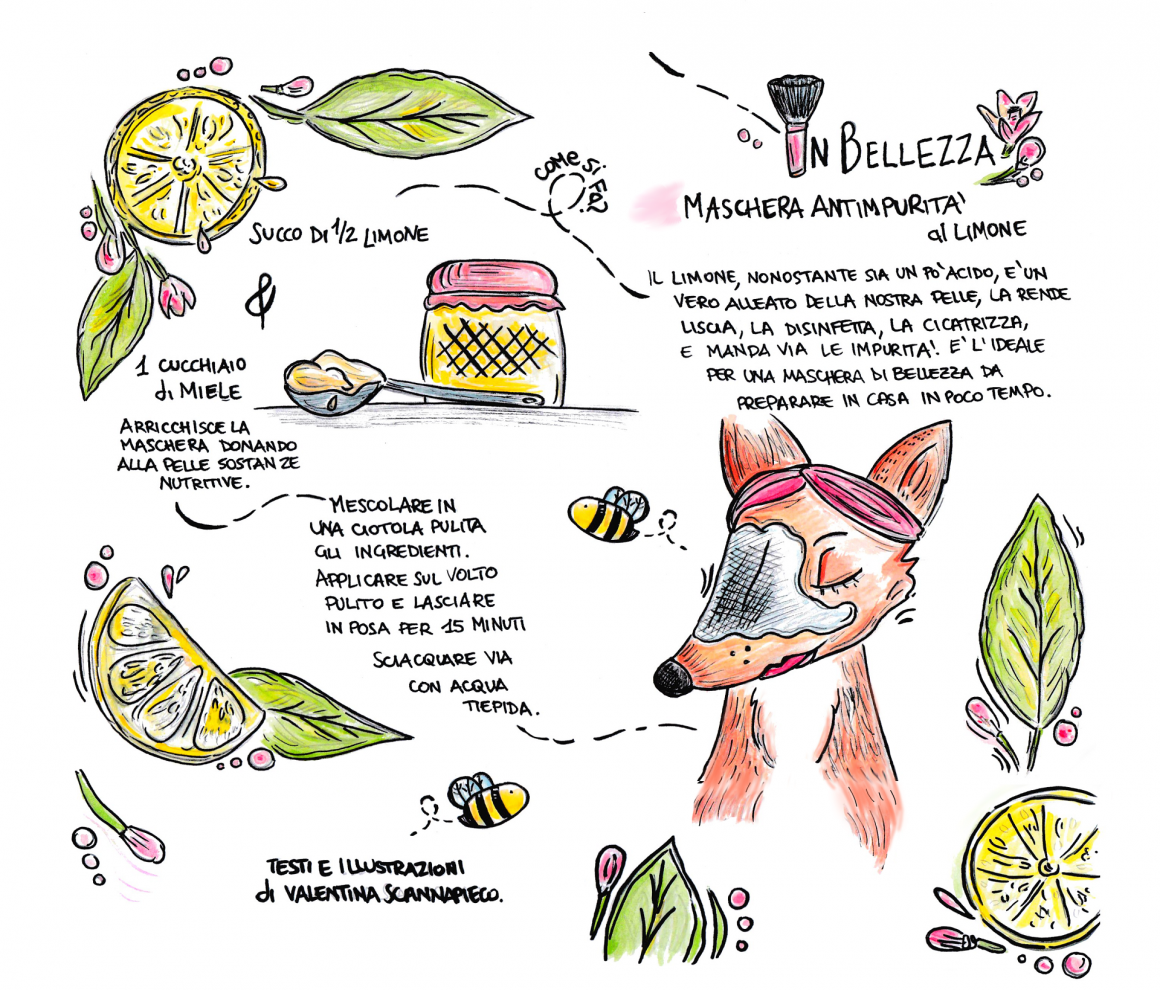 IN BELLEZZA
MASCHERA ANTIMPURITA'
al LIMONE
IL LIMONE, NONOSTANTE SIA UN PO' ACIDO, E' UN
VERO ALLEATO DELLA NOSTRA PELLE, LA RENDE
LISCIA, LA DISINFETTA, LA CICATRIZZA,
E MANDA VIA LE IMPURITA'. E' L'IDEALE
PER UNA MASCHERA DI BELLEZZA DA
PREPARARE IN CASA IN POCO TEMPO.
COME SI FA?
SUCCO DI 1/2 LIMONE
&
1 CUCCHIAIO
di MIELE
ARRICCHISCE LA
MASCHERA DONANDO
ALLA PELLE SOSTANZE
NUTRITIVE.
MESCOLARE IN
UNA CIOTOLA PULITA
GLI INGREDIENTI.
APPLICARE SUL VOLTO
PULITO E LASCIARE
IN POSA PER 15 MINUTI
SCIACQUARE VIA
CON ACQUA
TIEPIDA.
TESTI E ILLUSTRAZIONI
di VALENTINA SCANNAPIECO.